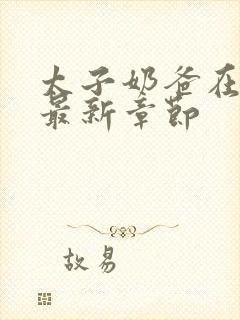 太子奶爸在
最新章节
故易